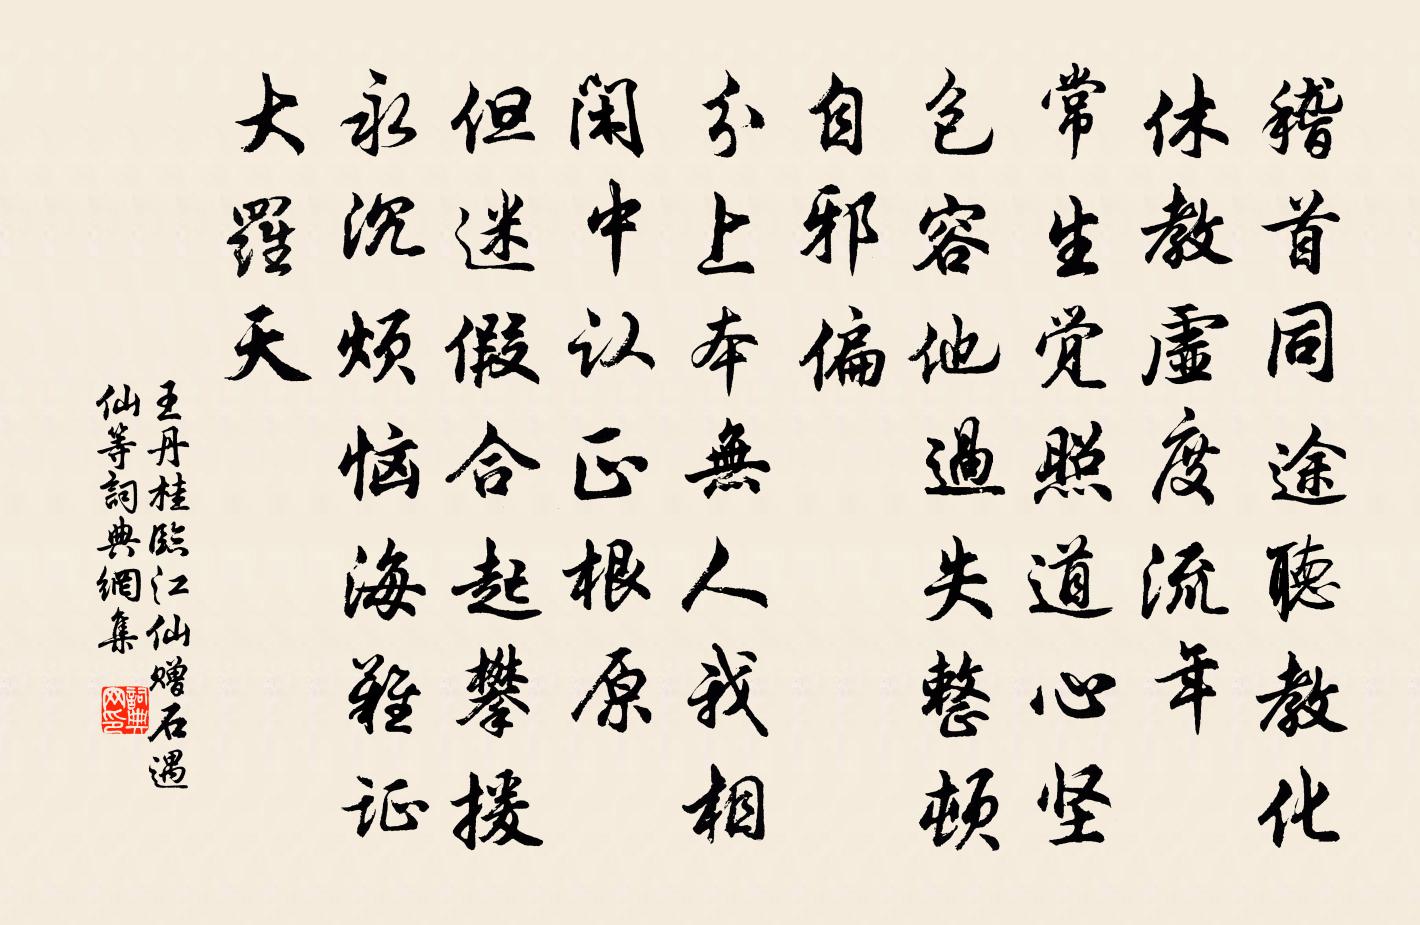 稽首同途聽教化
休教虛度流年
常生觉照道心坚
包容他過失整頓
自邪偏
分上本無人我相
闲中认正根原
但迷假合起攀援
永沉烦恼海難证
大羅天
王丹桂臨江仙赠石遇
仙等詞典網集
詞典网印